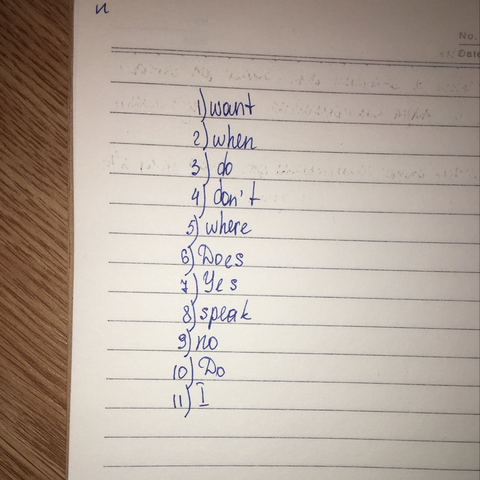 и
No.
Date
1) want
2) when
3) do
4) don't
5) where
6) Does
7) Yes
8) speak
9) no
10) Do
11) I